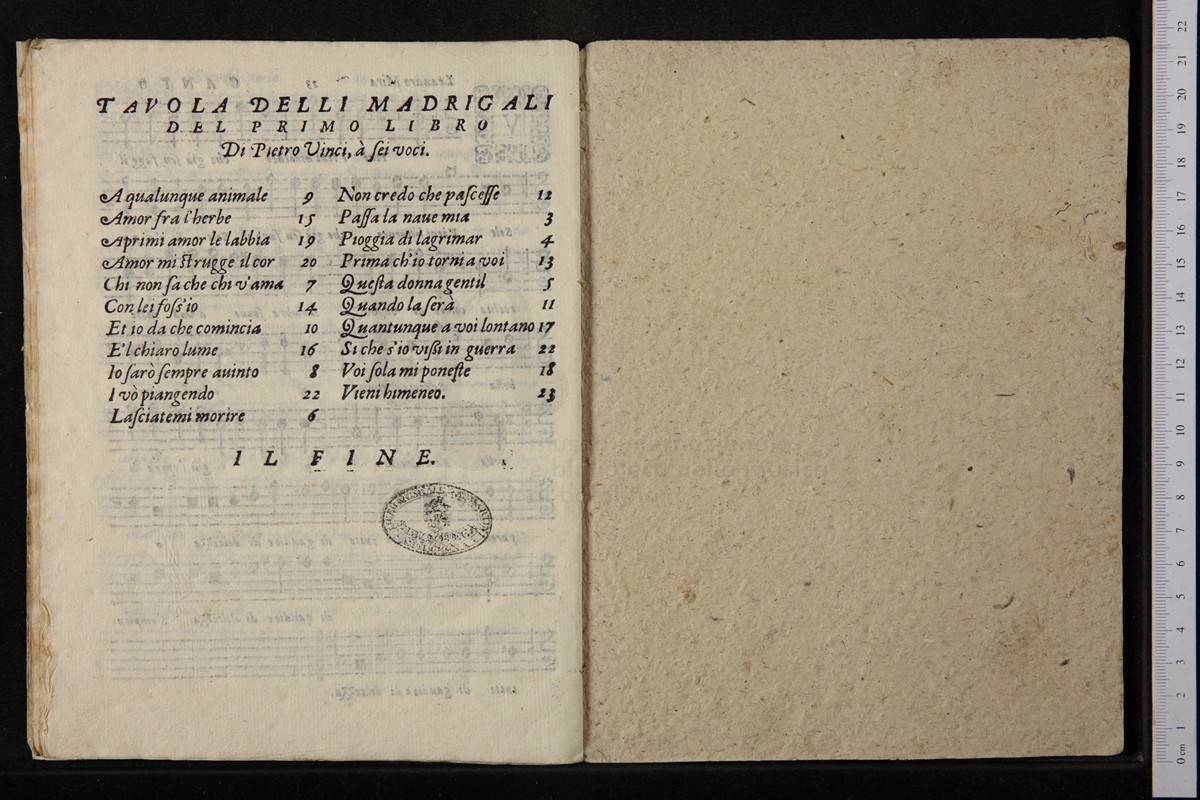 TAVOLA DELLI MADRIGALI
DEL PRIMO LIBRO
Di Pietro Vinci, à ſei voci.
A qualunque animale 9
Amor fra l'herbe 15
Aprimi amor le labbia 19
Amor mi ſtrugge il cor 20
Chi non ſa che chi v'ama 7
Con lei foſs'io 14
Et io da che comincia 10
E'l chiaro lume 16
Io ſarò ſempre auinto 8
I vò piangendo 22
Laſciatemi morire 6
Non credo che paſceſſe 12
Paſſa la naue mia 3
Pioggia di lagrimar 4
Prima ch'io torni a voi 13
Queſta donna gentil 5
Quando la ſerà 11
Quantunque a voi lontano 17
Si che s'io viſſi in guerra 22
Voi ſola mi poneſte 18
Vieni himeneo. 23
IL FINE.
0 cm 1 2 3 4 5 6 7 8 9 10 11 12 13 14 15 16 17 18 19 20 21 22